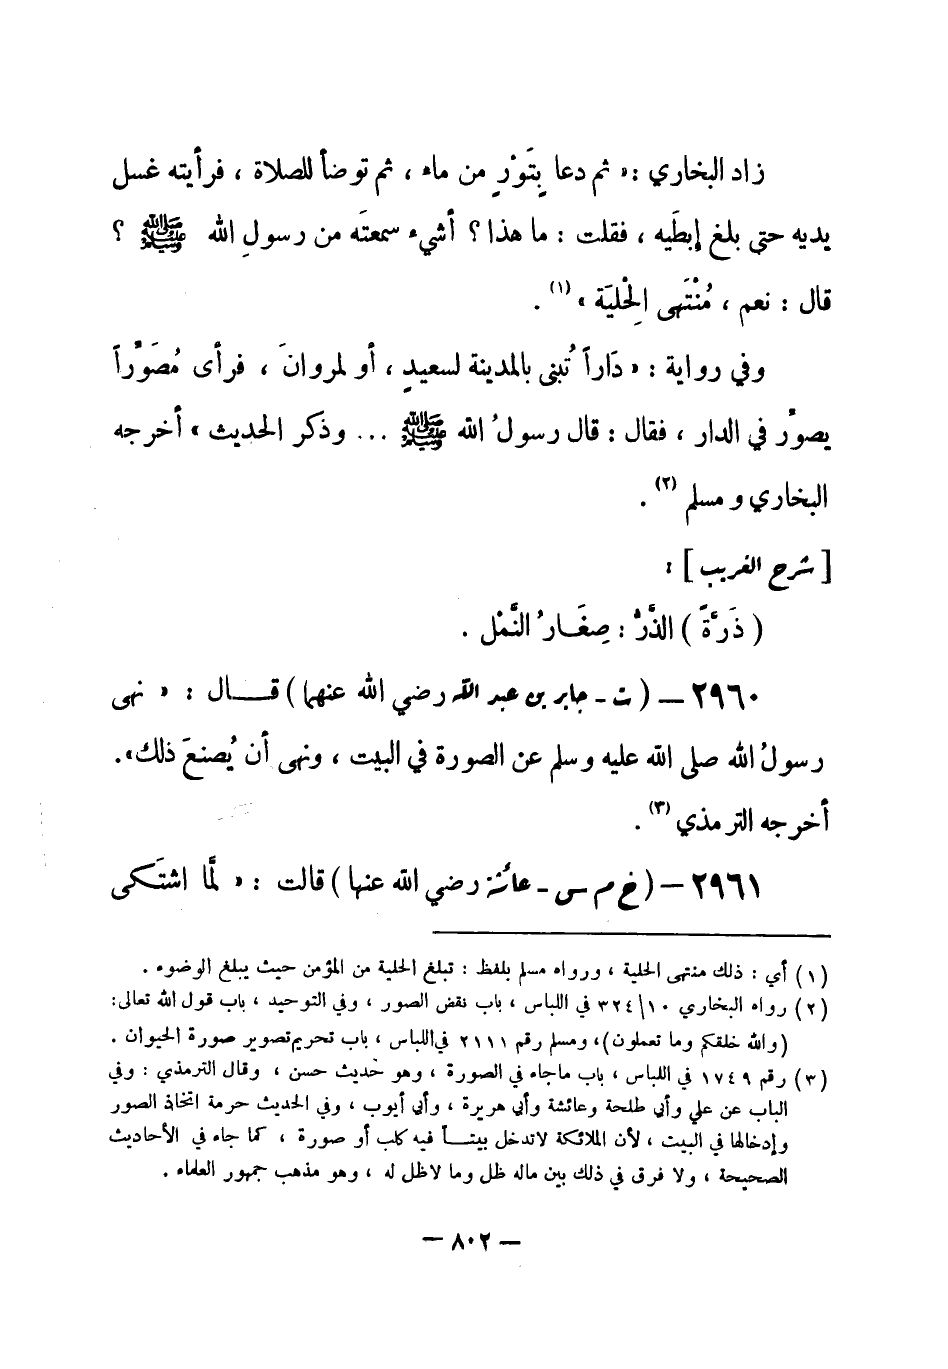 زاد البخاري : « ثم دعا بِتَوْرٍ من ماء ، ثم توضأ للصلاة ، فرأيته غسل
يديه حتى بلغ إبطَيه ، فقلت : ما هذا ؟ أشيء سمعتَه من رسولِ الله ﷺ ؟
قال : نعم ، مُنْتَهى الِحْليَة » (١) .
وفي رواية : « دَاراً تُبنى بالمدينة لسعيدٍ ، أو لمروانَ ، فرأى مُصَوِّراً
يصوِّر في الدار ، فقال : قال رسولُ الله ﷺ ... وذكر الحديث » أخرجه
البخاري ومسلم (٢) .
[ شرح الغريب ] :
( ذَرَّةً ) الذَّرُّ : صِغَارُ النَّمْل .
٢٩٦٠ – ( ت - جابر بن عبد الله رضي الله عنهما ) قال : « نهى
رسولُ الله صلى الله عليه وسلم عن الصورة في البيت ، ونهى أن يُصنعَ ذلك» .
أخرجه الترمذي (٣) .
٢٩٦١ – ( خ م س - عائشة رضي الله عنها ) قالت : « لمَّا اشتَكى
(١) أي : ذلك منتهى الحلية ، ورواه مسلم بلفظ : تبلغ الحلية من المؤمن حيث يبلغ الوضوء .
(٢) رواه البخاري ١٠/٣٢٤ في اللباس ، باب نقض الصور ، وفي التوحيد ، باب قول الله تعالى:
(والله خلقكم وما تعملون) ، ومسلم رقم ٢١١١ في اللباس ، باب تحريم تصوير صورة الحيوان .
(٣) رقم ١٧٤٩ في اللباس ، باب ماجاء في الصورة ، وهو حديث حسن ، وقال الترمذي : وفي
الباب عن علي وأبي طلحة وعائشة وأبي هريرة ، وأبي أيوب ، وفي الحديث حرمة اتخاذ الصور
وإدخالها في البيت ، لأن الملائكة لاتدخل بيتاً فيه كلب أو صورة ، كما جاء في الأحاديث
الصحيحة ، ولا فرق في ذلك بين ماله ظل وما لاظل له ، وهو مذهب جمهور العلماء .
– ٨٠٢ –